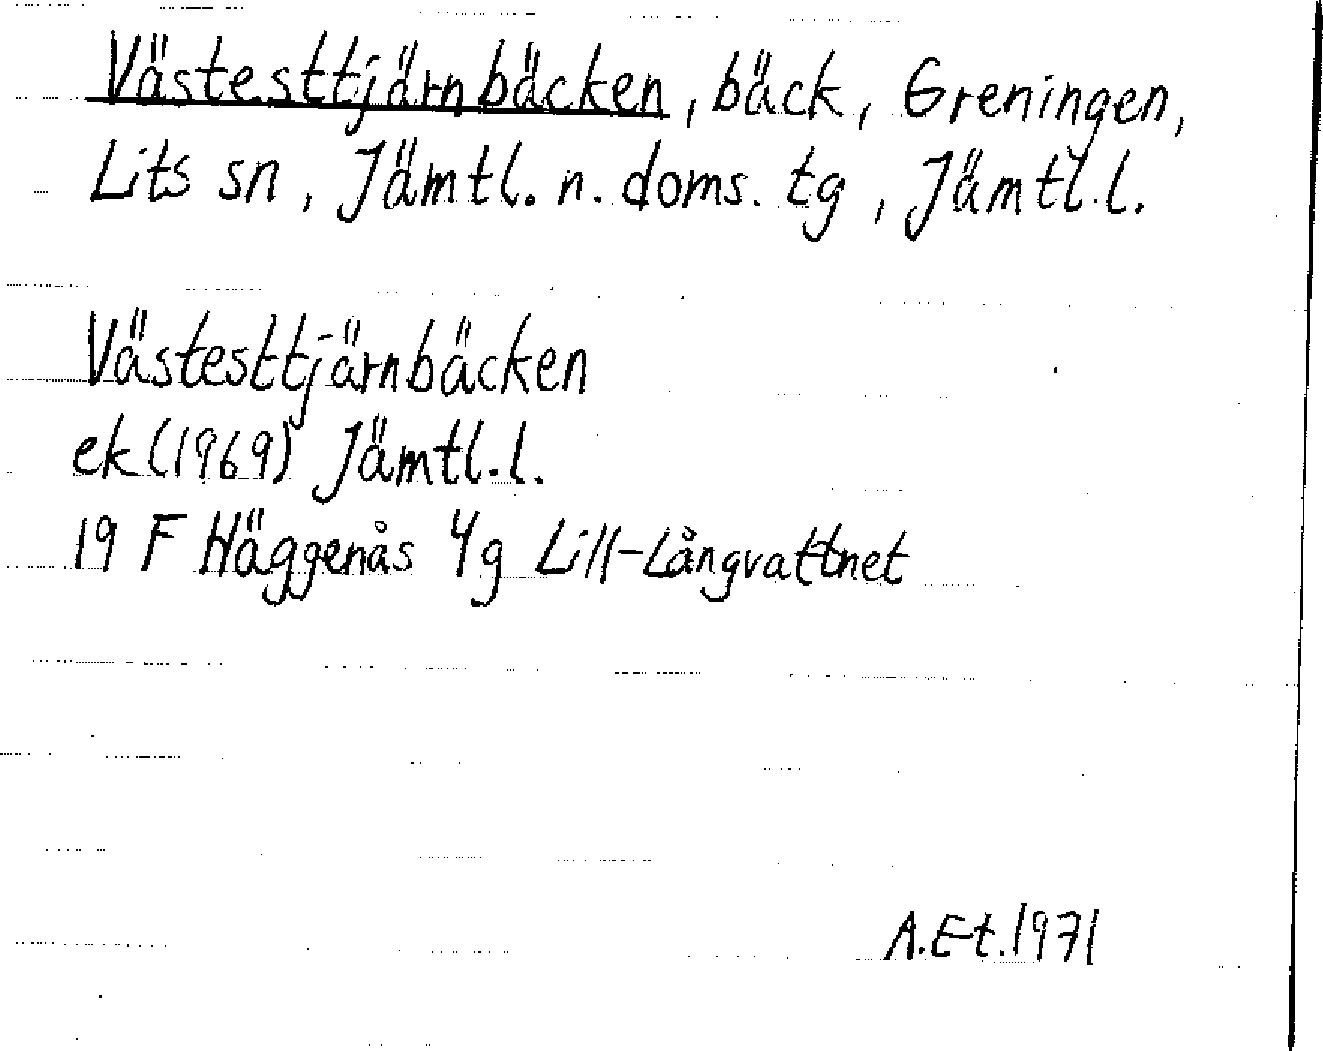 Västesttjärnbäcken, bäck, Greningen,
Lits sn, Jämtl. n. doms. tg, Jämtl. l.
Västesttjärnbäcken
ek (1969) Jämtl. l.
19 F Häggenås 4g Lill-Långvattnet
A.Et. 1971